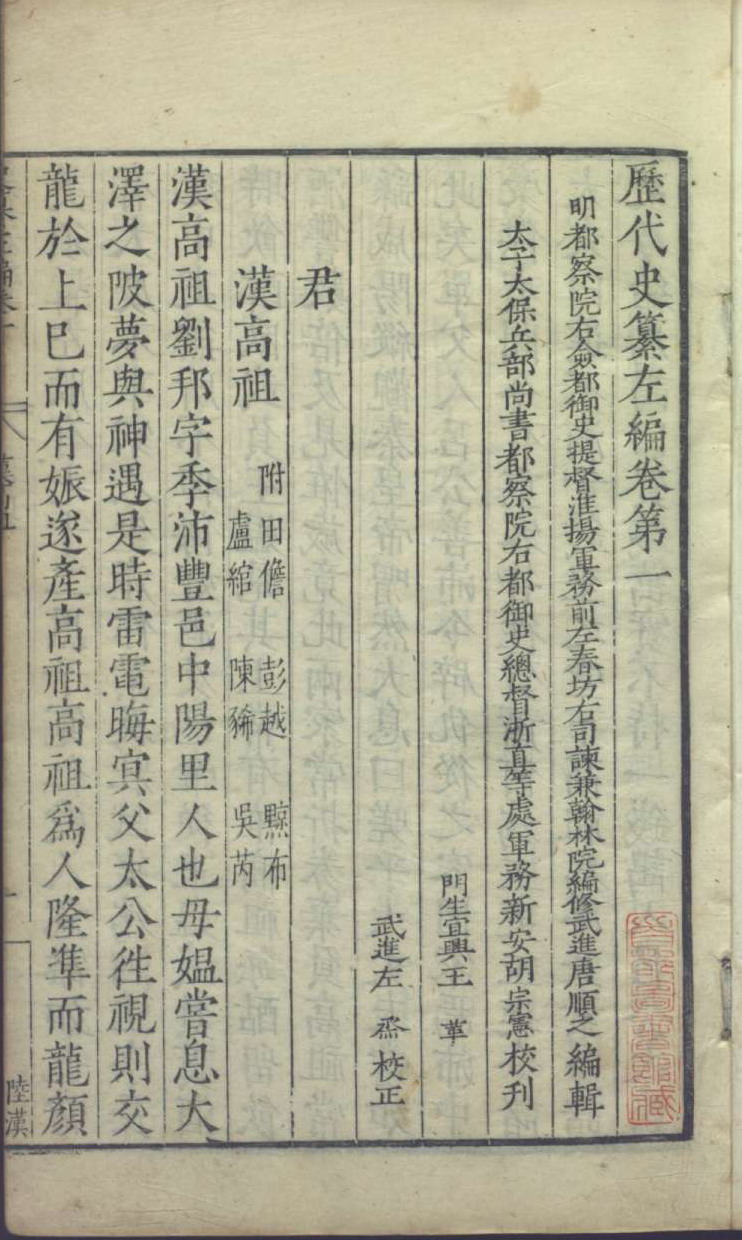 歷代史纂左編卷第一
明都察院右僉都御史提督淮揚軍務前左春坊右司諫兼翰林院編修武進唐順之編輯
太子太保兵部尚書都察院右都御史總督浙直等處軍務新安胡宗憲校刊
門生宜興王革
武進左烝校正
君
漢高祖
附田儋 彭越 黥布
盧綰 陳豨 吳芮
漢高祖劉邦字季沛豐邑中陽里人也母媼嘗息大
澤之陂夢與神遇是時雷電晦㝠父太公徃視則交
龍於上巳而有娠遂產高祖高祖爲人隆準而龍顏
陸漢